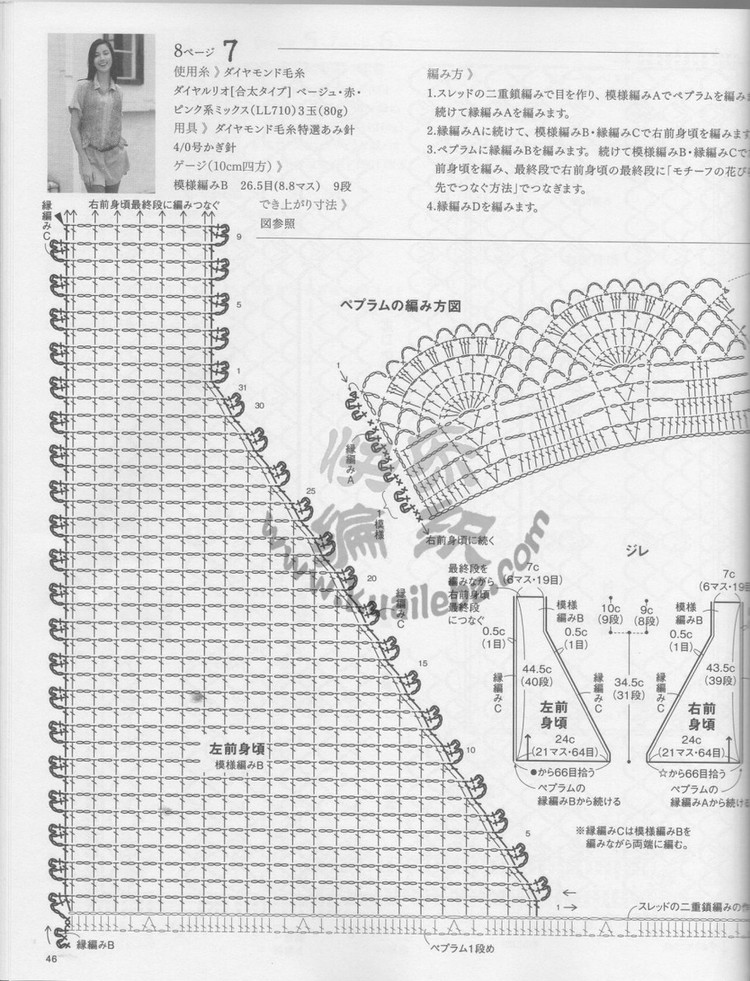 8ページ 7
使用糸 》 ダイヤモンド毛糸
ダイヤルリオ[合太タイプ] ベージュ・赤・
ピンク系ミックス(LL710)3玉(80g)
用具 》 ダイヤモンド毛糸特選あみ針
4/0号かぎ針
ゲージ(10cm四方) 》
模様編みB 26.5目(8.8マス) 9段
でき上がり寸法 》
図参照
編み方 》
1.スレッドの二重鎖編みで目を作り、模様編みAでペプラムを編み
続けて縁編みAを編みます。
2.縁編みAに続けて、模様編みB・縁編みCで右前身頃を編みます
3.ペプラムに縁編みBを編みます。 続けて模様編みB・縁編みCで
前身頃を編み、最終段で右前身頃の最終段に「モチーフの花び
先でつなぐ方法」でつなぎます。
4.縁編みDを編みます。
縁編みC
右前身頃最終段に編みつなぐ
9
5
1
31
30
25
20
15
10
5
1
縁編みC
左前身頃
模様編みB
縁編みB
ペプラム1段め
スレッドの二重鎖編みの作
ペプラムの編み方図
1
縁編みA
1模様
右前身頃に続く
ジレ
最終段を
編みながら
右前身頃
最終段
につなぐ
7c
(6マス・19目)
模様
編みB
0.5c
(1目)
0.5c
(1目)
縁編みC
44.5c
(40段)
縁編みC
左前
身頃
24c
(21マス・64目)
●から66目拾う
ペプラムの
縁編みBから続ける
10c
(9段)
9c
(8段)
34.5c
(31段)
7c
(6マス・19目
模様
編みB
0.5c
(1目)
縁編みC
43.5c
(39段)
右前
身頃
24c
(21マス・64目)
☆から66目拾う
ペプラムの
縁編みAから続け
※縁編みCは模様編みBを
編みながら両端に編む。
46